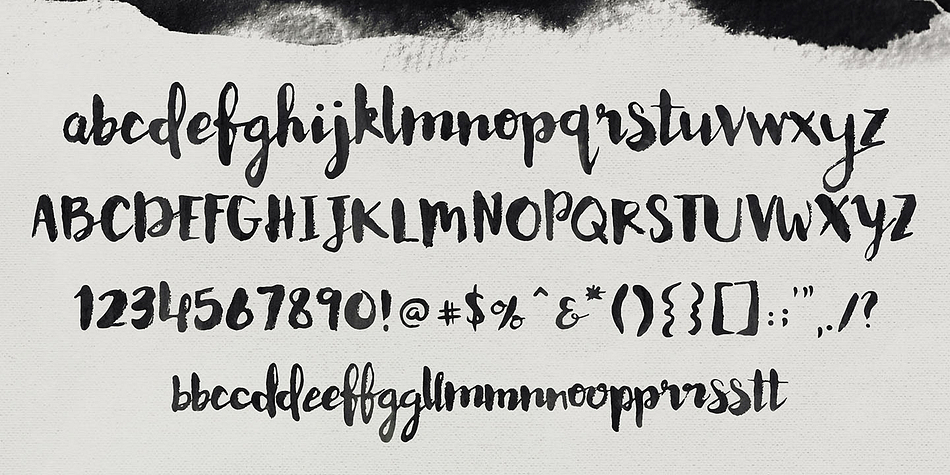 abcdefghijklmnopqrstuvwxyz
ABCDEFGHIJKLMNOPQRSTUVWXYZ
1234567890!@#$%^&*(){}[]:;'",./?
bbccddeeffggllmmnnoopprrsstt